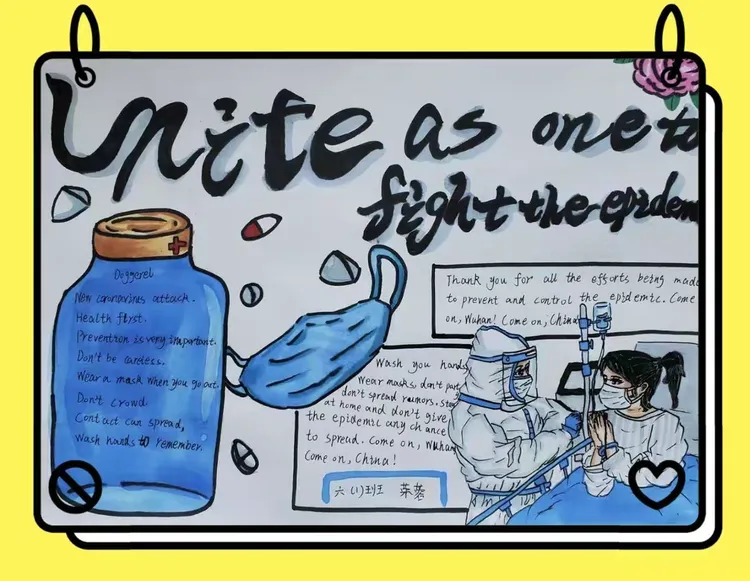 Unite as one to
fight the epidem
Doggerel
New coronavirus attack.
Health first.
Prevention is very important.
Don't be careless.
Wear a mask when you go out.
Don't crowd.
Contact can spread,
Wash hands to remember.
Thank you for all the efforts being made
to prevent and control the epidemic. Come
on, Wuhan! Come on, China
Wash you hands
Wear masks, don't part
don't spread rumors. stay
at home and don't give
the epidemic any chance
to spread. Come on, Wuhan
Come on, China!
六(1)班